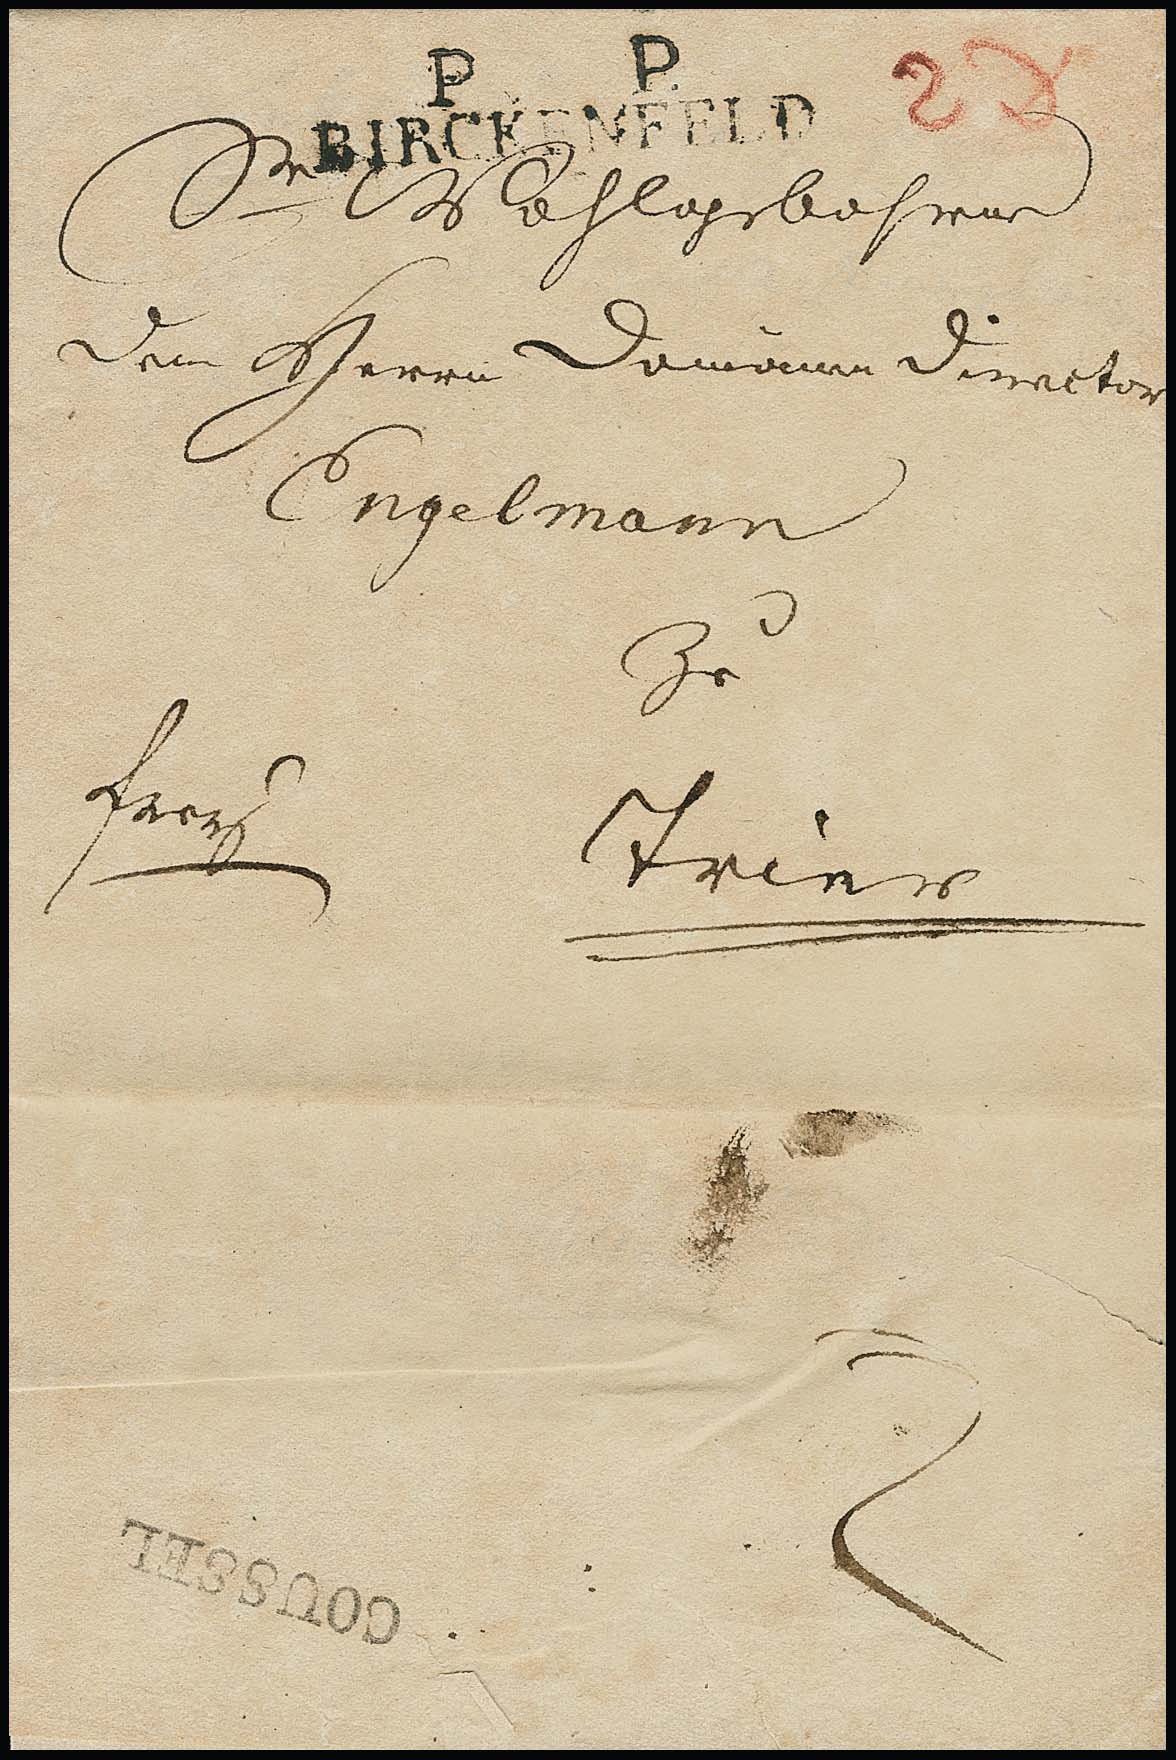 P. P.
BIRCKENFELD
Sr Wohlgebohren
dem Herrn Domänen Director
Engelmann
Zu
frey
Trier
COUSSEL